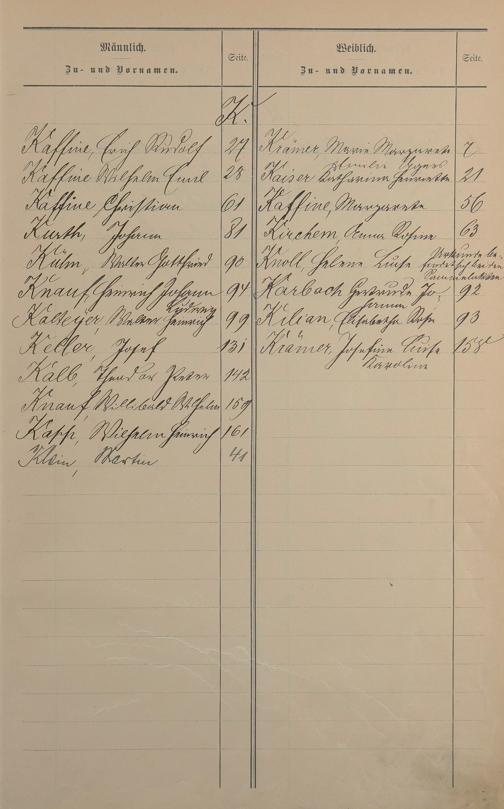 Männlich.
Zu- und Vornamen.
Seite.
K.
Kaffine, Erich Rudolf 27
Kaffine Wilhelm Emil 28
Kaffine, Christian 61
Kurth, Johann 81
Külm, Walter Gottfried 90
Knauf, Heinrich Johann 94
Ludwig
Kalteyer, Walter Heinrich 99
Keller, Josef 131
Kalb, Theodor Peter 142
Knauf, Willibald Wilhelm 159
Kapp, Wilhelm Heinrich 161
Klein, Martin 41
Weiblich.
Zu- und Vornamen.
Seite.
Krämer, Marie Margarete 7
Kaiser Catharina Henriette 21
Kaffine, Margarete 56
Kirchem, Anna 63
Knoll, Helene Luise
Karbach Gertrude Jo- 92
hanna
Kilian, Elisabetha Rosa 93
Krämer, Josefine Luise 158
Karoline